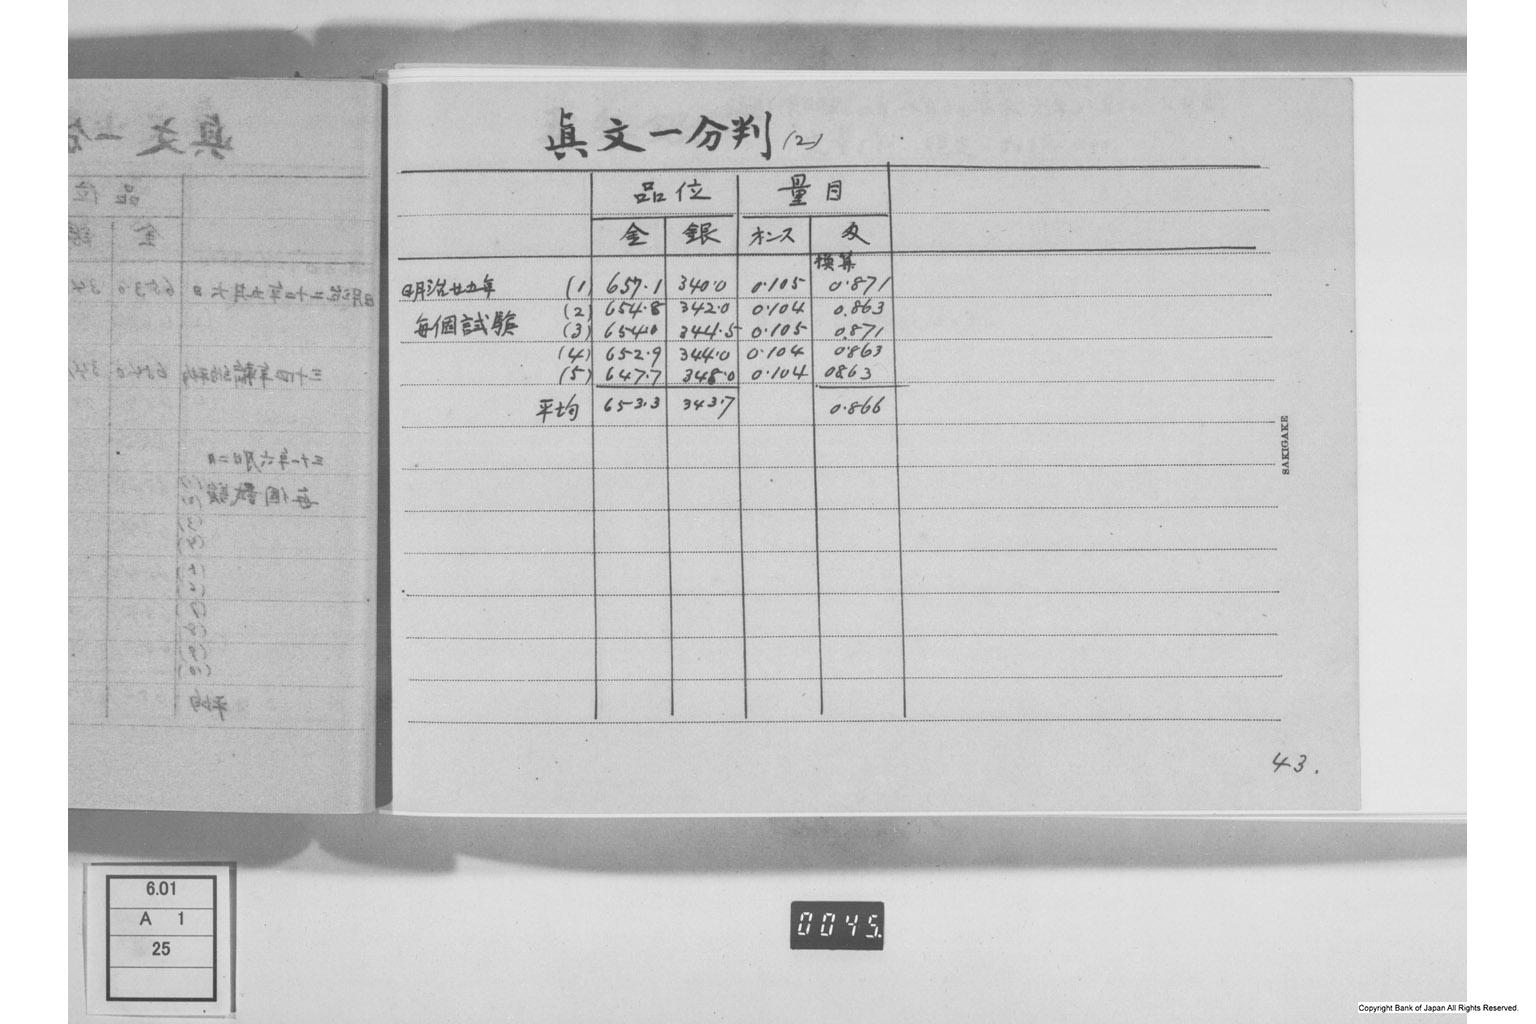 眞文一分判(2)
品位 量目
金 銀 オンス 匁
換算
明治廿五年 (1) 657.1 340.0 0.105 0.871
(2) 654.8 342.0 0.104 0.863
毎個試験 (3) 654.0 344.5 0.105 0.871
(4) 652.9 344.0 0.104 0.863
(5) 647.7 348.0 0.104 0863
平均 653.3 343.7 0.866
SAKIGAKE
43.
6.01
A 1
25
0045.
Copyright Bank of Japan All Rights Reserved.